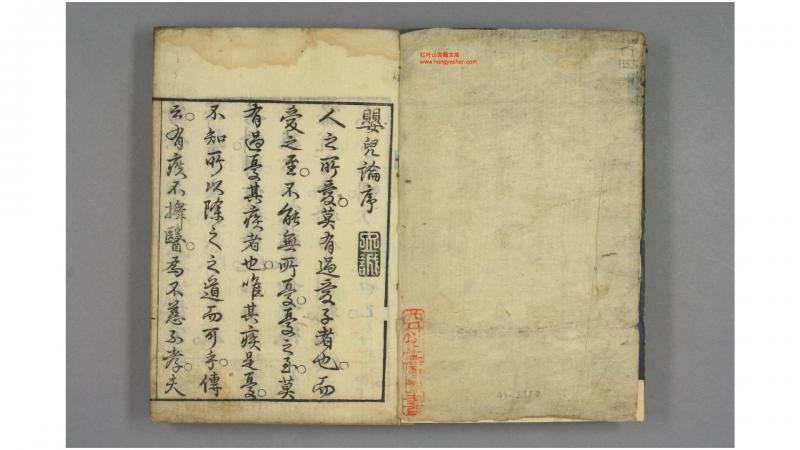 嬰兒論序
人之所愛莫有過愛子者也而
愛之至不能無所憂憂之至莫
有過憂其疾者也唯其疾是憂
不知所以除之之道而可乎傳
云有疾不擇醫爲不慈不孝夫
红叶山古籍文库
www.hongyeshan.com
91-2780